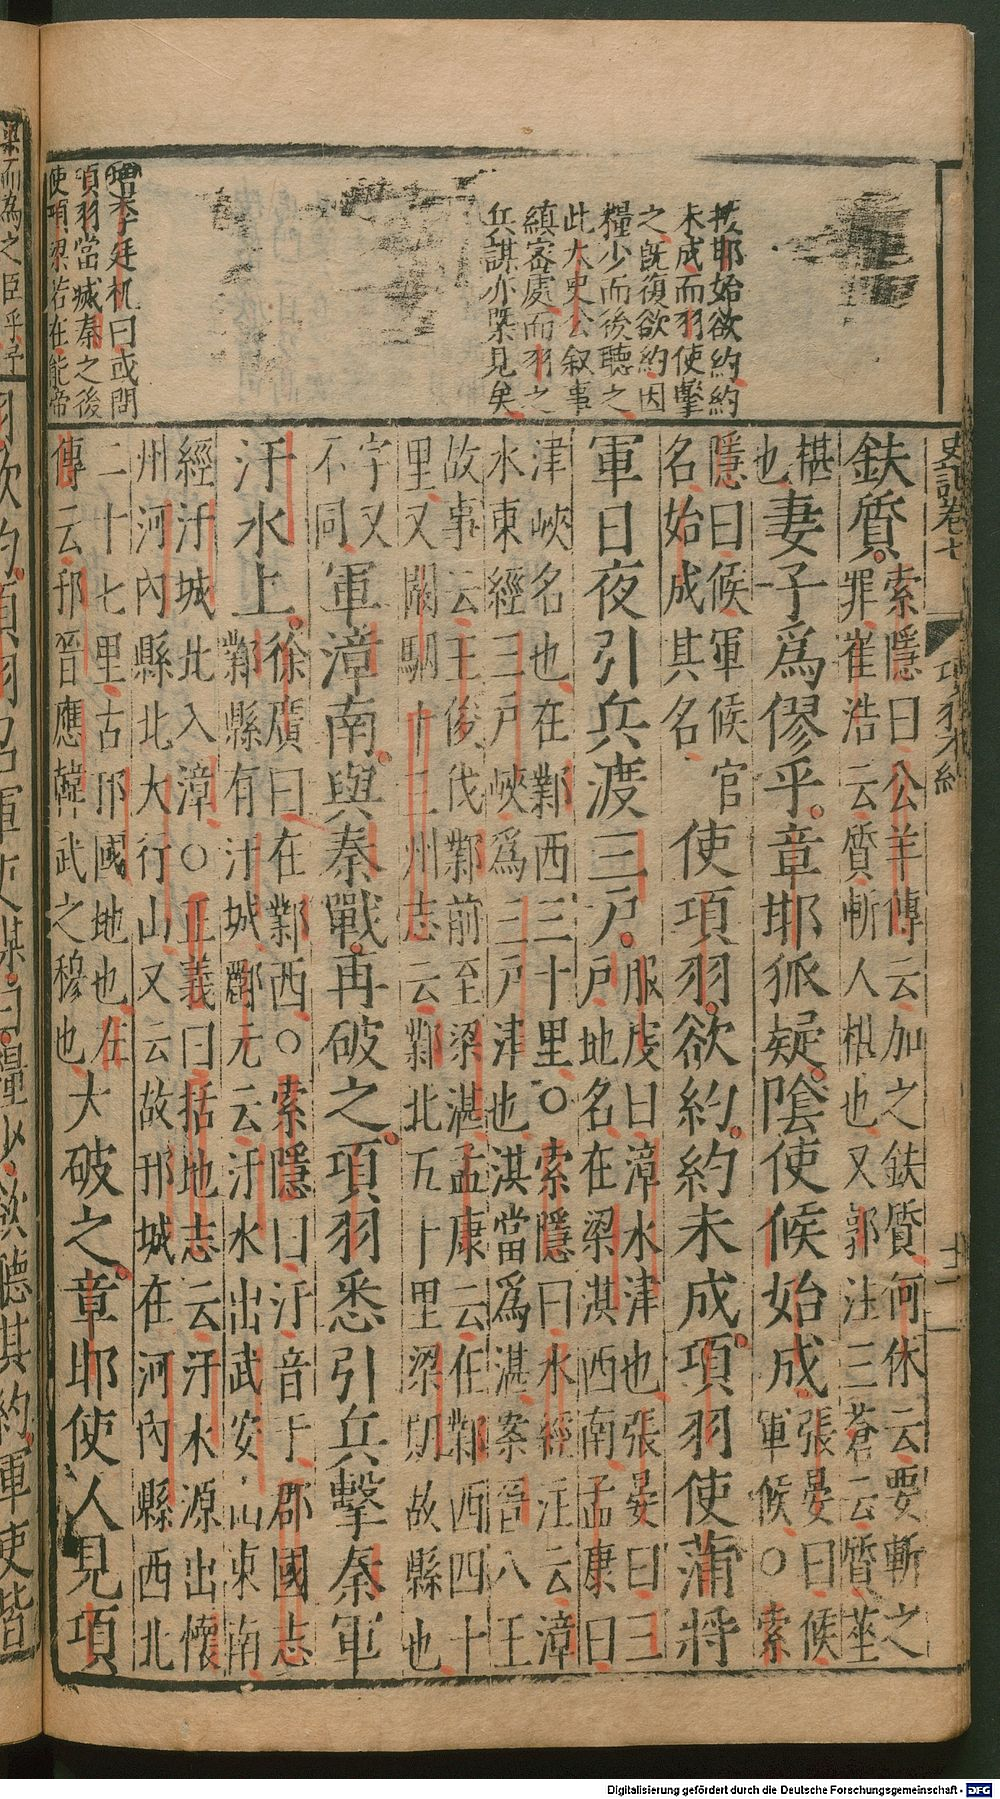 史記卷七
項羽本紀
十二
扶邯始欲約約
未成而羽使擊
之旣復欲約因
糧少而後聽之
此太史公叙事
縝密處而羽之
兵謀亦槩見矣
增朱子廷机曰或問
項羽當滅秦之後
使項梁若在能帝
鈇質
索隱曰公羊傳云加之鈇質何休云要斬之
罪崔浩云質斬人椹也又郭注三蒼云質莝
椹
也
妻子爲僇乎章邯狐疑陰使候始成
張晏曰候
軍候○索
隱曰候軍候官
名始成其名
使項羽欲約約未成項羽使蒲將
軍日夜引兵渡三戶
服虔曰漳水津也張晏曰三
戶地名在梁淇西南孟康曰
津峽名也在鄴西三十里○索隱曰水經注云漳
水東經三戶峽爲三戶津也淇當爲湛案晉八王
故事云王俊伐鄴前至梁湛孟康云在鄴西四十
里又闞駰十三州志云鄴北五十里梁期故縣也
字又
不同
軍漳南與秦戰再破之項羽悉引兵擊秦軍
汙水上
徐廣曰在鄴西○索隱曰汙音于郡國志
鄴縣有汙城酈元云汙水出武安山東南
經汙城北入漳○正義曰括地志云汙水源出懷
州河內縣北大行山又云故邘城在河內縣西北
二十七里古邘國地也左
傳云邘晉應韓武之穆也
大破之章邯使人見項
Digitalisierung gefördert durch die Deutsche Forschungsgemeinschaft - DFG